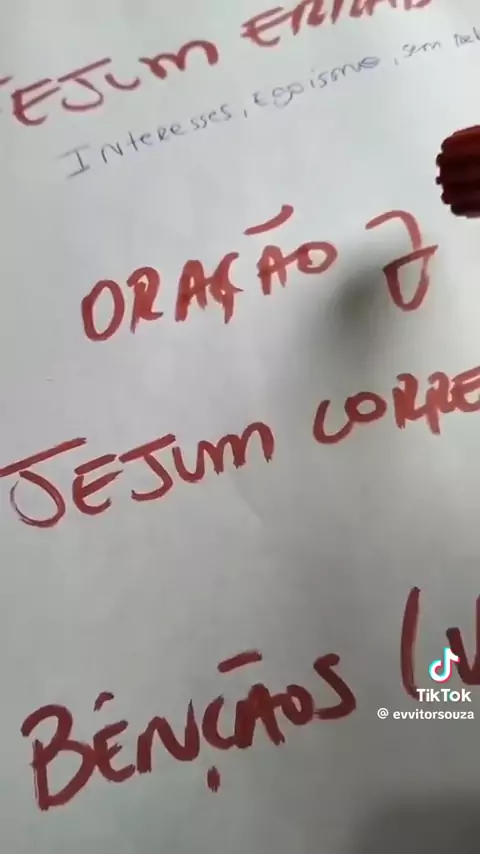 JEJUM ERRAD
INteResses, Egoismo, sem
ORAÇÃO
JEJUM CORRE
BÊNÇÃOS (V
TikTok
@ evvitorsouza